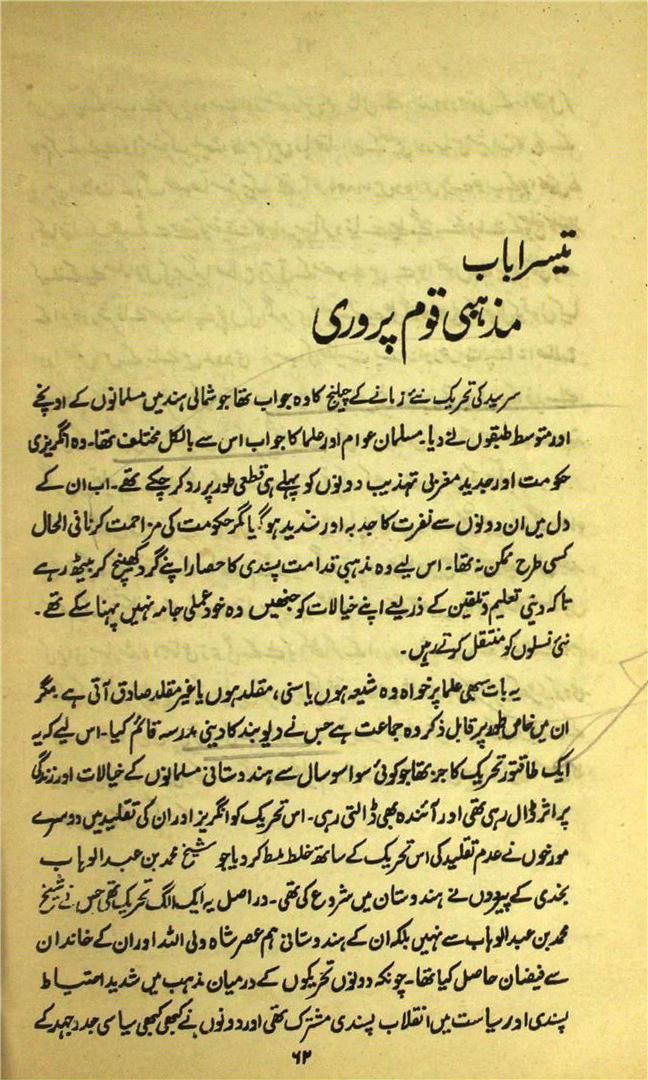 تیسرا باب
مذہبی قوم پروری
سرسید کی تحریک نئے زمانے کے چیلنج کا وہ جواب تھا جو شمالی ہند میں مسلمانوں کے اونچے
اور متوسط طبقوں نے دیا۔ مسلمان عوام اور علما کا جواب اس سے بالکل مختلف تھا۔ وہ انگریزی
حکومت اور جدید مغربی تہذیب دونوں کو پہلے ہی قطعی طور پر رد کر چکے تھے۔ اب ان کے
دل میں ان دونوں سے نفرت کا جذبہ اور شدید ہو گیا مگر حکومت کی مزاحمت کرنا فی الحال
کسی طرح ممکن نہ تھا۔ اس لیے وہ مذہبی قدامت پسندی کا حصار اپنے گرد کھینچ کر بیٹھ رہے
تاکہ دینی تعلیم و تلقین کے ذریعے اپنے خیالات کو جنھیں وہ خود عملی جامہ نہیں پہنا سکے تھے۔
نئی نسلوں کو منتقل کرتے رہیں۔
یہ بات سبھی علما پر خواہ وہ شیعہ ہوں یا سنی، مقلد ہوں یا غیر مقلد صادق آتی ہے۔ مگر
ان میں خاص طور پر قابل ذکر وہ جماعت ہے جس نے دیوبند کا دینی مدرسہ قائم کیا۔ اس لیے کہ یہ
ایک طاقتور تحریک کا جز تھا جو کوئی سوا سو سال سے ہندوستانی مسلمانوں کے خیالات اور زندگی
پر اثر ڈال رہی تھی اور آئندہ بھی ڈالتی رہی۔ اس تحریک کو انگریز اور ان کی تقلید میں دوسرے
مورخوں نے عدم تقلید کی اس تحریک کے ساتھ خلط ملط کر دیا جو شیخ محمد بن عبد الوہاب
نجدی کے پیرووں نے ہندوستان میں شروع کی تھی۔ دراصل یہ ایک الگ تحریک تھی جس نے شیخ
محمد بن عبد الوہاب سے نہیں بلکہ ان کے ہندوستانی ہم عصر شاہ ولی اللہ اور ان کے خاندان
سے فیضان حاصل کیا تھا۔ چونکہ دونوں تحریکوں کے درمیان مذہب میں شدید احتیاط
پسندی اور سیاست میں انقلاب پسندی مشترک تھی اور دونوں نے کبھی کبھی سیاسی جدوجہد کے
۶۲